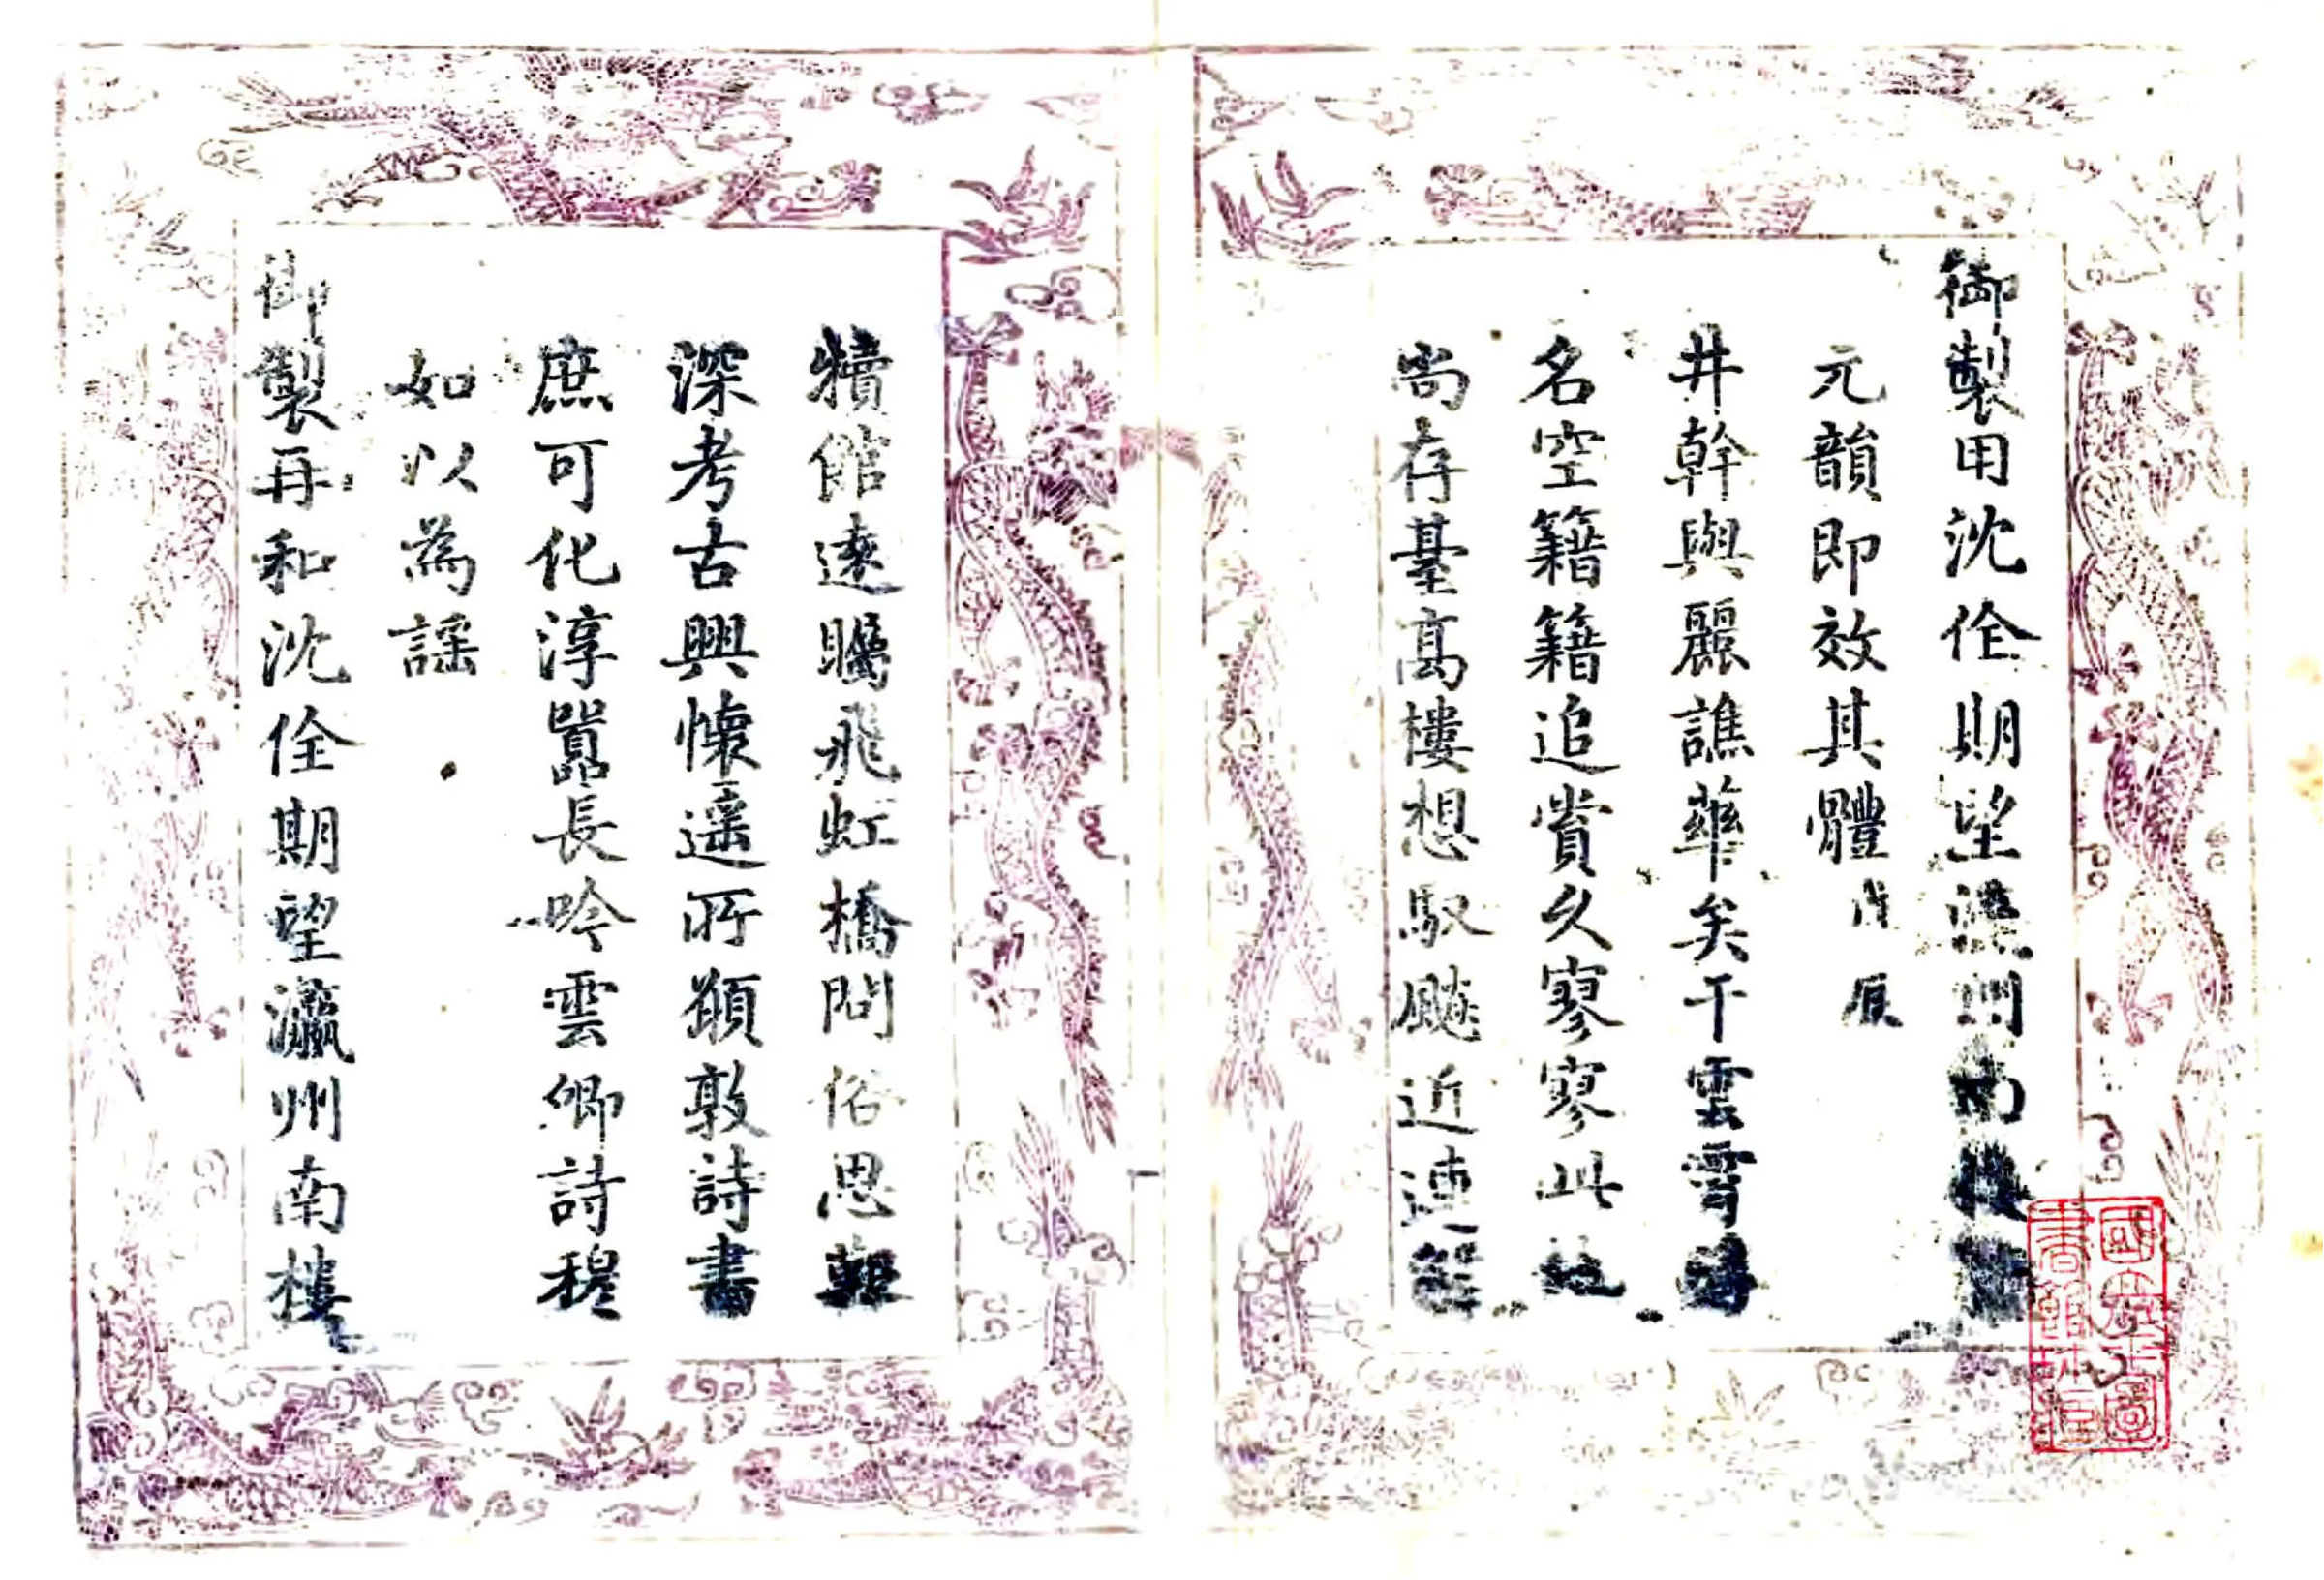 御製用沈佺期望瀛州南樓
元韻即效其體 戊辰
井幹與麗譙華矣干雲霄
名空籍籍追賞久寥寥此
尚存基高樓想馭飇近連
犢館遠矚飛虹橋問俗思
深考古興懷遥所願敦詩書
庶可化淳囂長吟雲卿詩穆
如以為謡
御製再和沈佺期望瀛州南樓
國立北平圖
書館珍藏